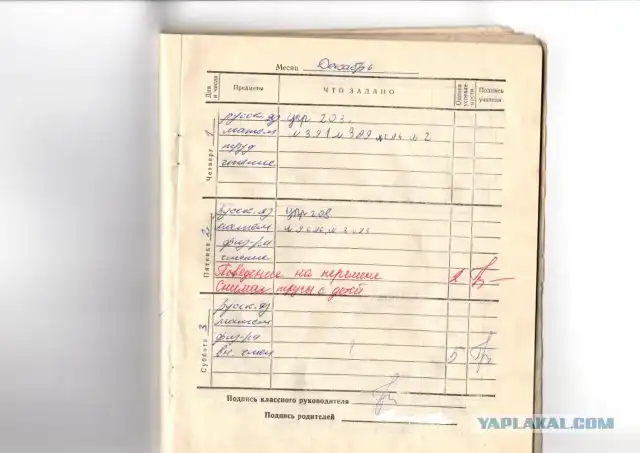 Месяц Декабрь
Дни и числа Предметы ЧТО ЗАДАНО Оценка успеваемости Подпись учителя
Четверг 1
русск. яз упр 203.
матем № 391 № 389
труд
чтение
Пятница 2
Русск. яз упр 208
матем
физ-ра
чтение
Поведение на перемене 2
Снимал трусы с детей
Суббота 3
Русск. яз
матем
физ-ра
Вн. чтен 5
Подпись классного руководителя
Подпись родителей
YAPLAKAL.COM